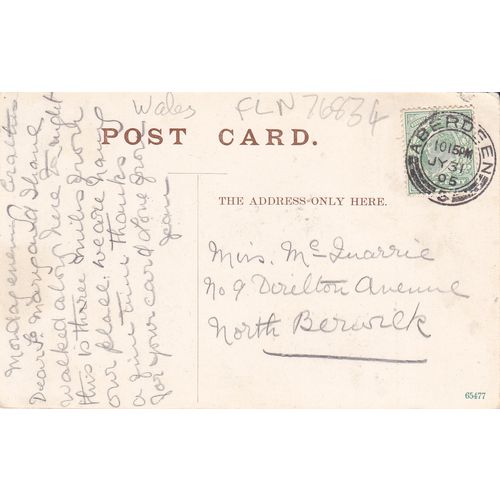 Wales
FLN 76834
POST CARD.
ABERDEEN
10 15PM
JY 31
05
5
THE ADDRESS ONLY HERE.
Miss. Mc Quarrie
No 9 Direlton Avenue
North Berwick
65477
Monday evening
Dear
walked along here to night
this is three miles from
our place. we are having
a fine time thanks
for your card love from
Jean